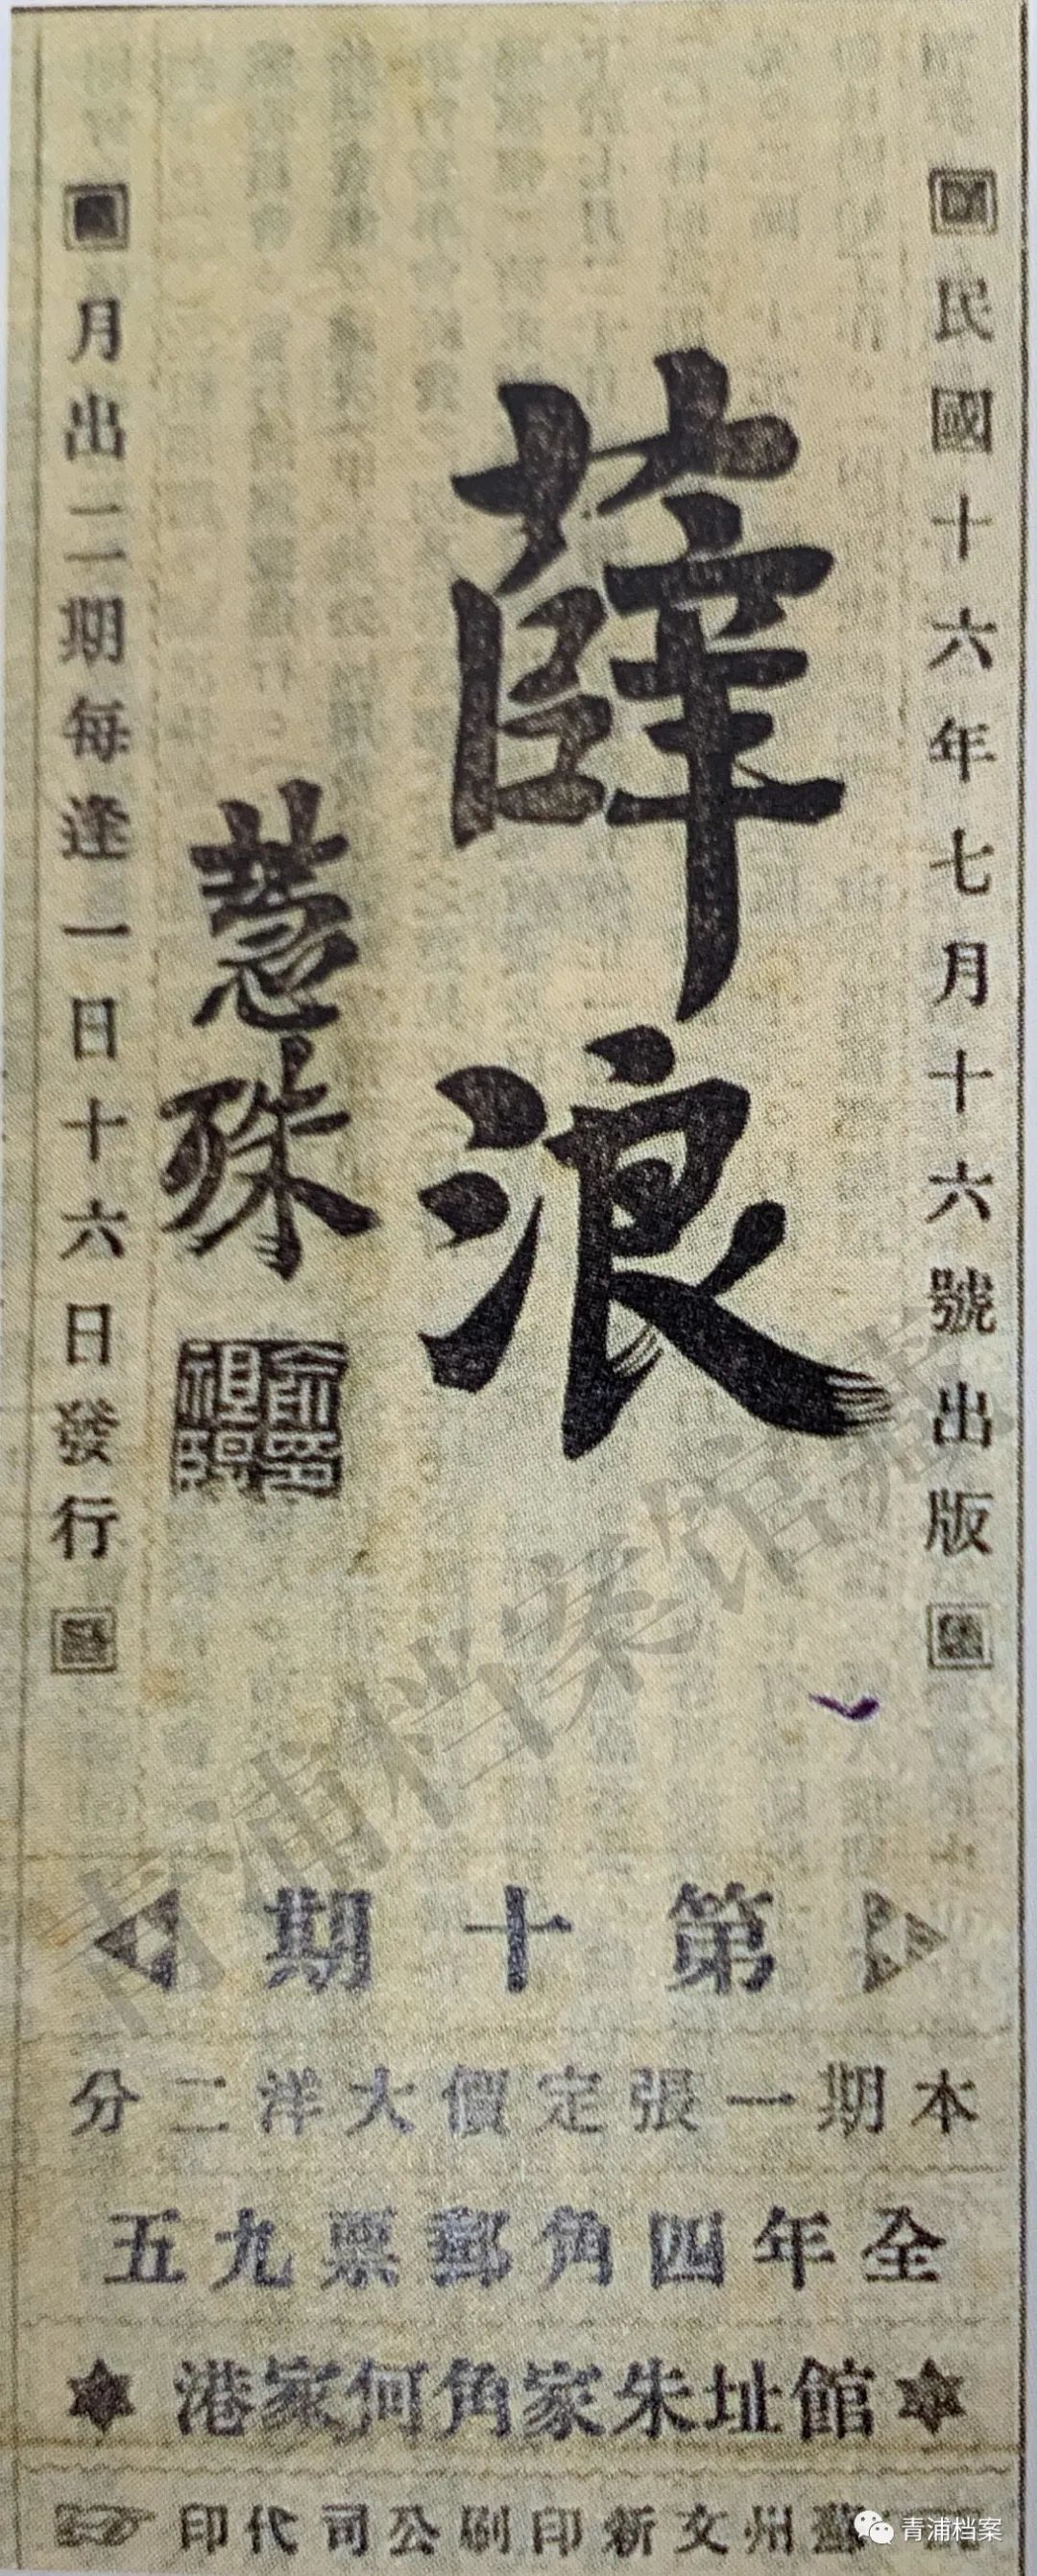 民國十六年七月十六號出版
薛浪
慧殊
月出二期每逢一日十六日發行
第十期
本期一張定價大洋二分
全年四角郵票九五
館址朱家角何家港
蘇州文新印刷公司代印
青浦档案馆藏
青浦档案